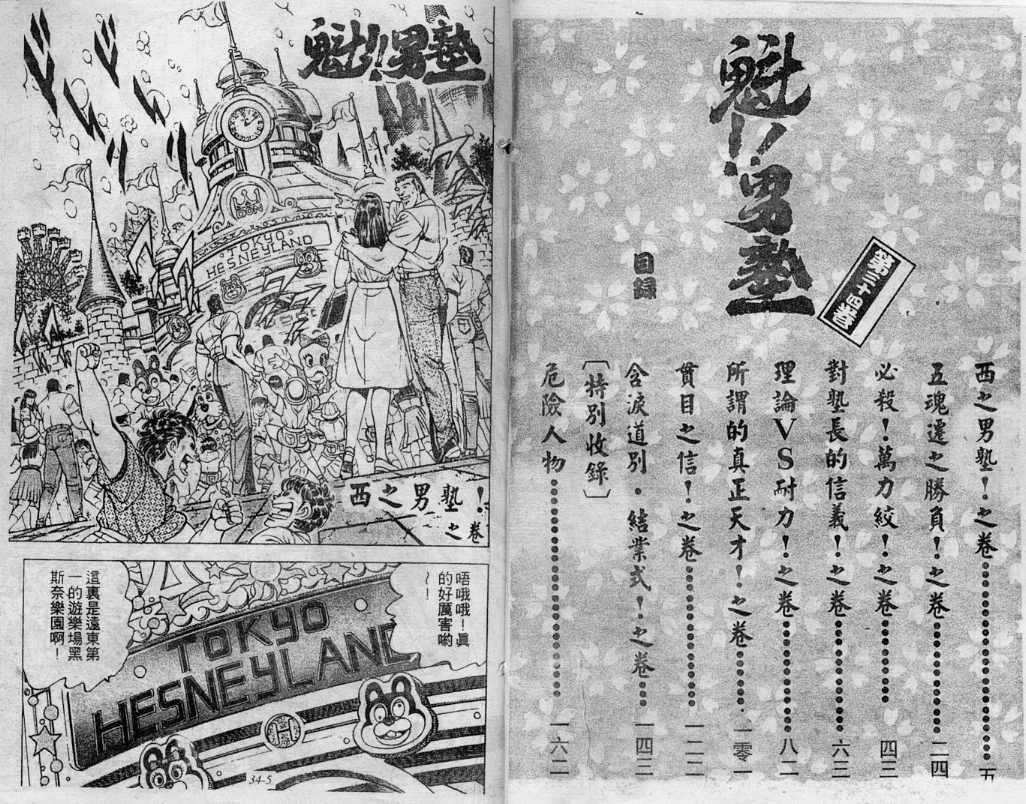 魁!!男塾
第三十四巻
目録
西之男塾!之巻……五
五魂遷之勝負!之巻……二四
必殺!萬力絞!之巻……四三
對塾長的信義!之巻……六三
理論VS耐力!之巻……八二
所謂的真正天才!之巻……一零一
貫目之信!之巻……一二二
含淚道別・結業式!之巻……一四三
〔特別收錄〕
危險人物……一六二
魁!!男塾
TOKYO
HESNEYLAND
西之男塾!
之巻
唔哦哦!眞
的好厲害喲
~!
這裏是遠東第
一的遊樂場黑
斯奈樂園啊!
TOKYO
HESNEYLAND
34-5